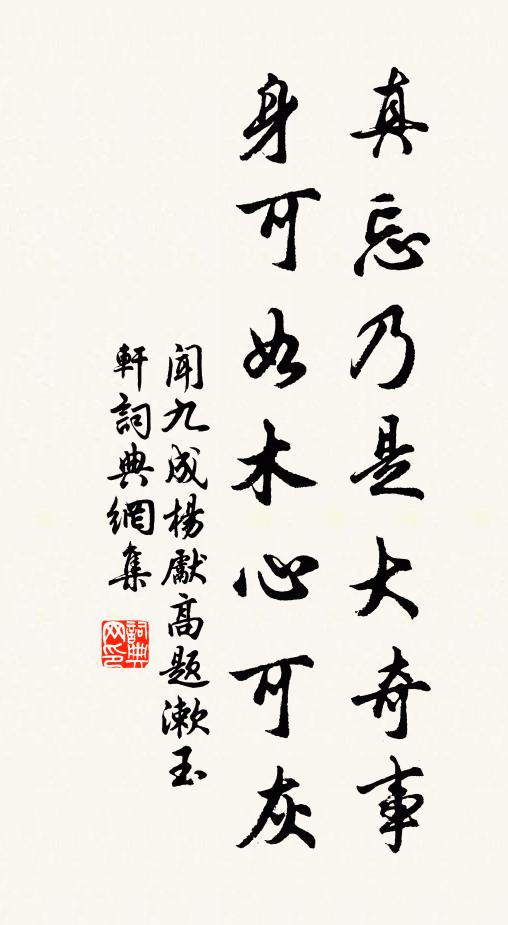 真忘乃是大奇事
身可如木心可灰
聞九成楊獻高題漱玉
軒詞典網集
詞典
网印